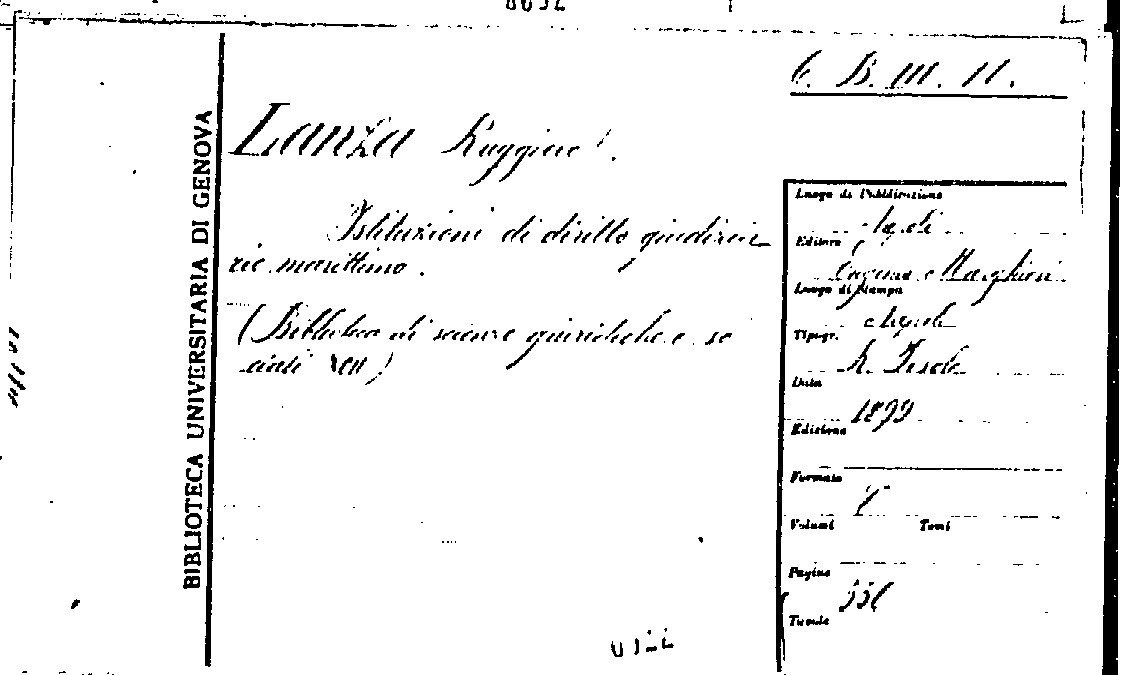 6. B. III. 11.
BIBLIOTECA UNIVERSITARIA DI GENOVA
Lanza Ruggiero.
Istituzioni di diritto giudizia
rio marittimo.
(Biblioteca di scienze giuridiche e so
ciali XVI)
Luogo di Pubblicazione
Napoli
Editore
Eugenio Marghieri
Luogo di Stampa
Napoli
Tipogr.
R. Pesole
Data
1899
Edizione
Formato
8°
Volumi Tomi
Pagine
Tavole